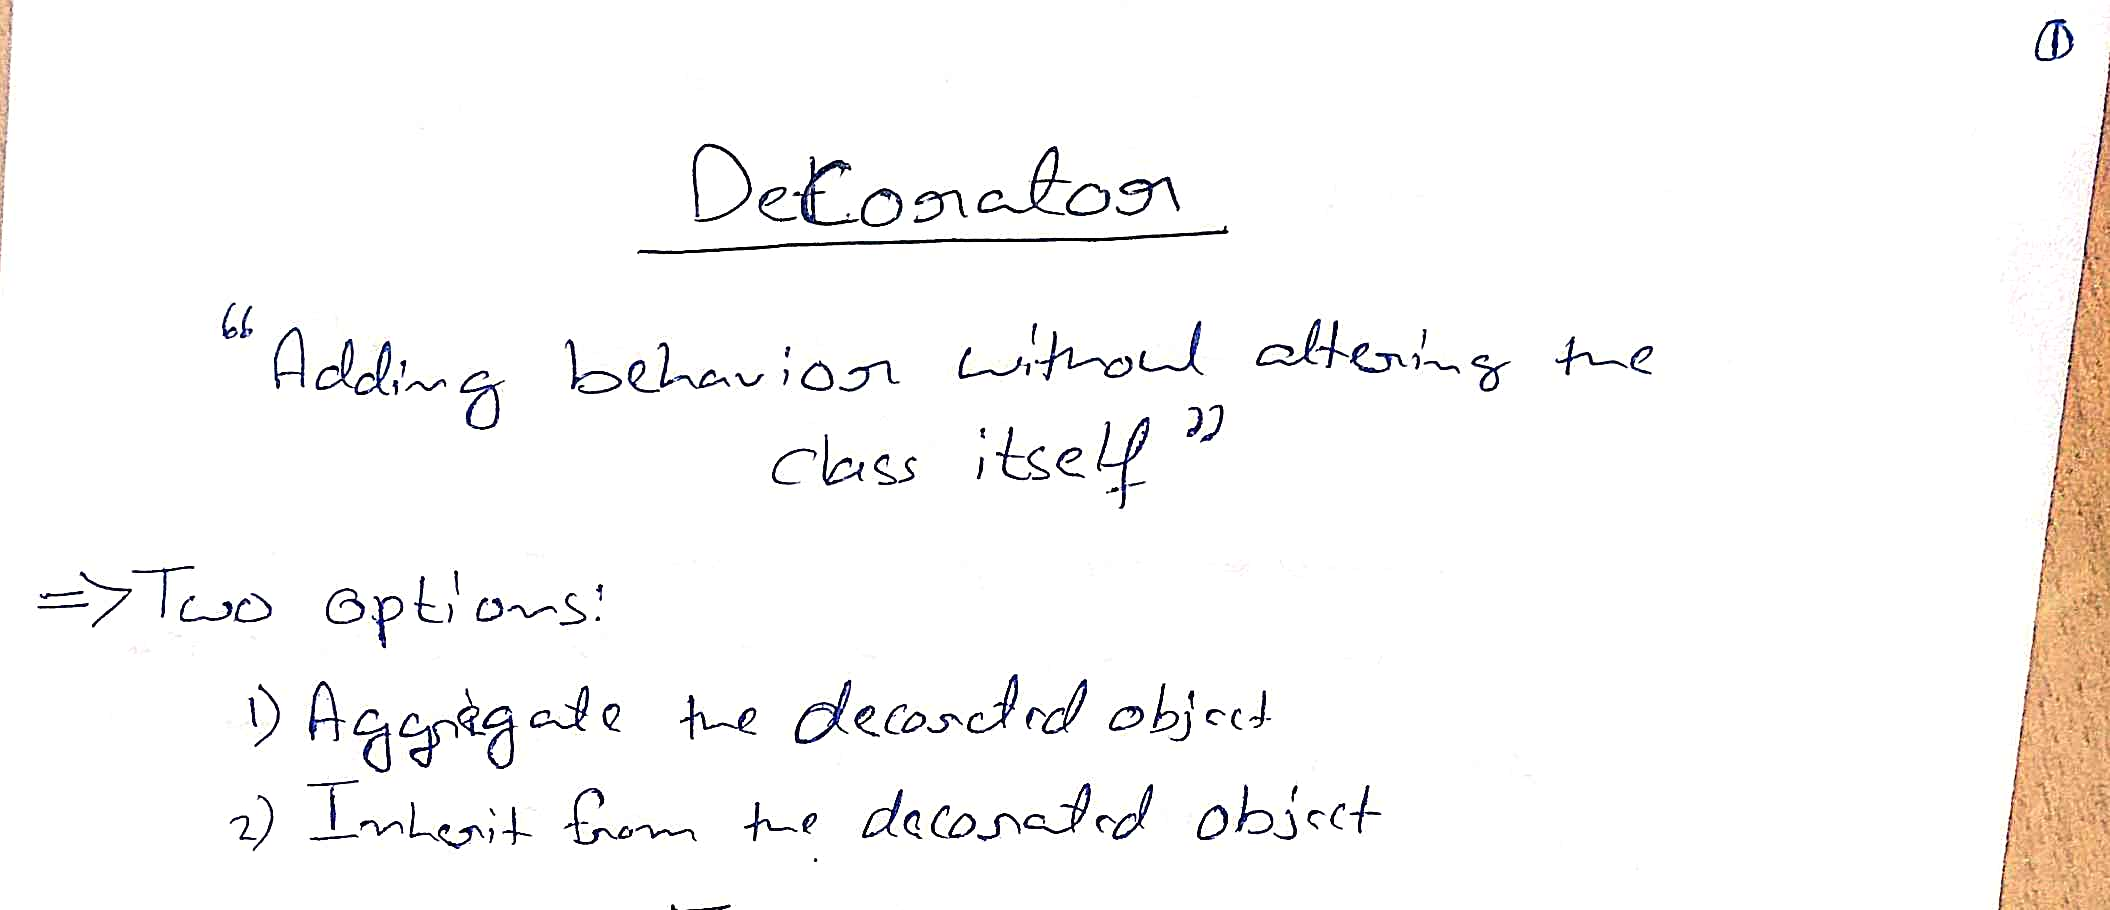 ①
Decorator
“Adding behavior without altering the
class itself”
=> Two options:
1) Aggregate the decorated object
2) Inherit from the decorated object